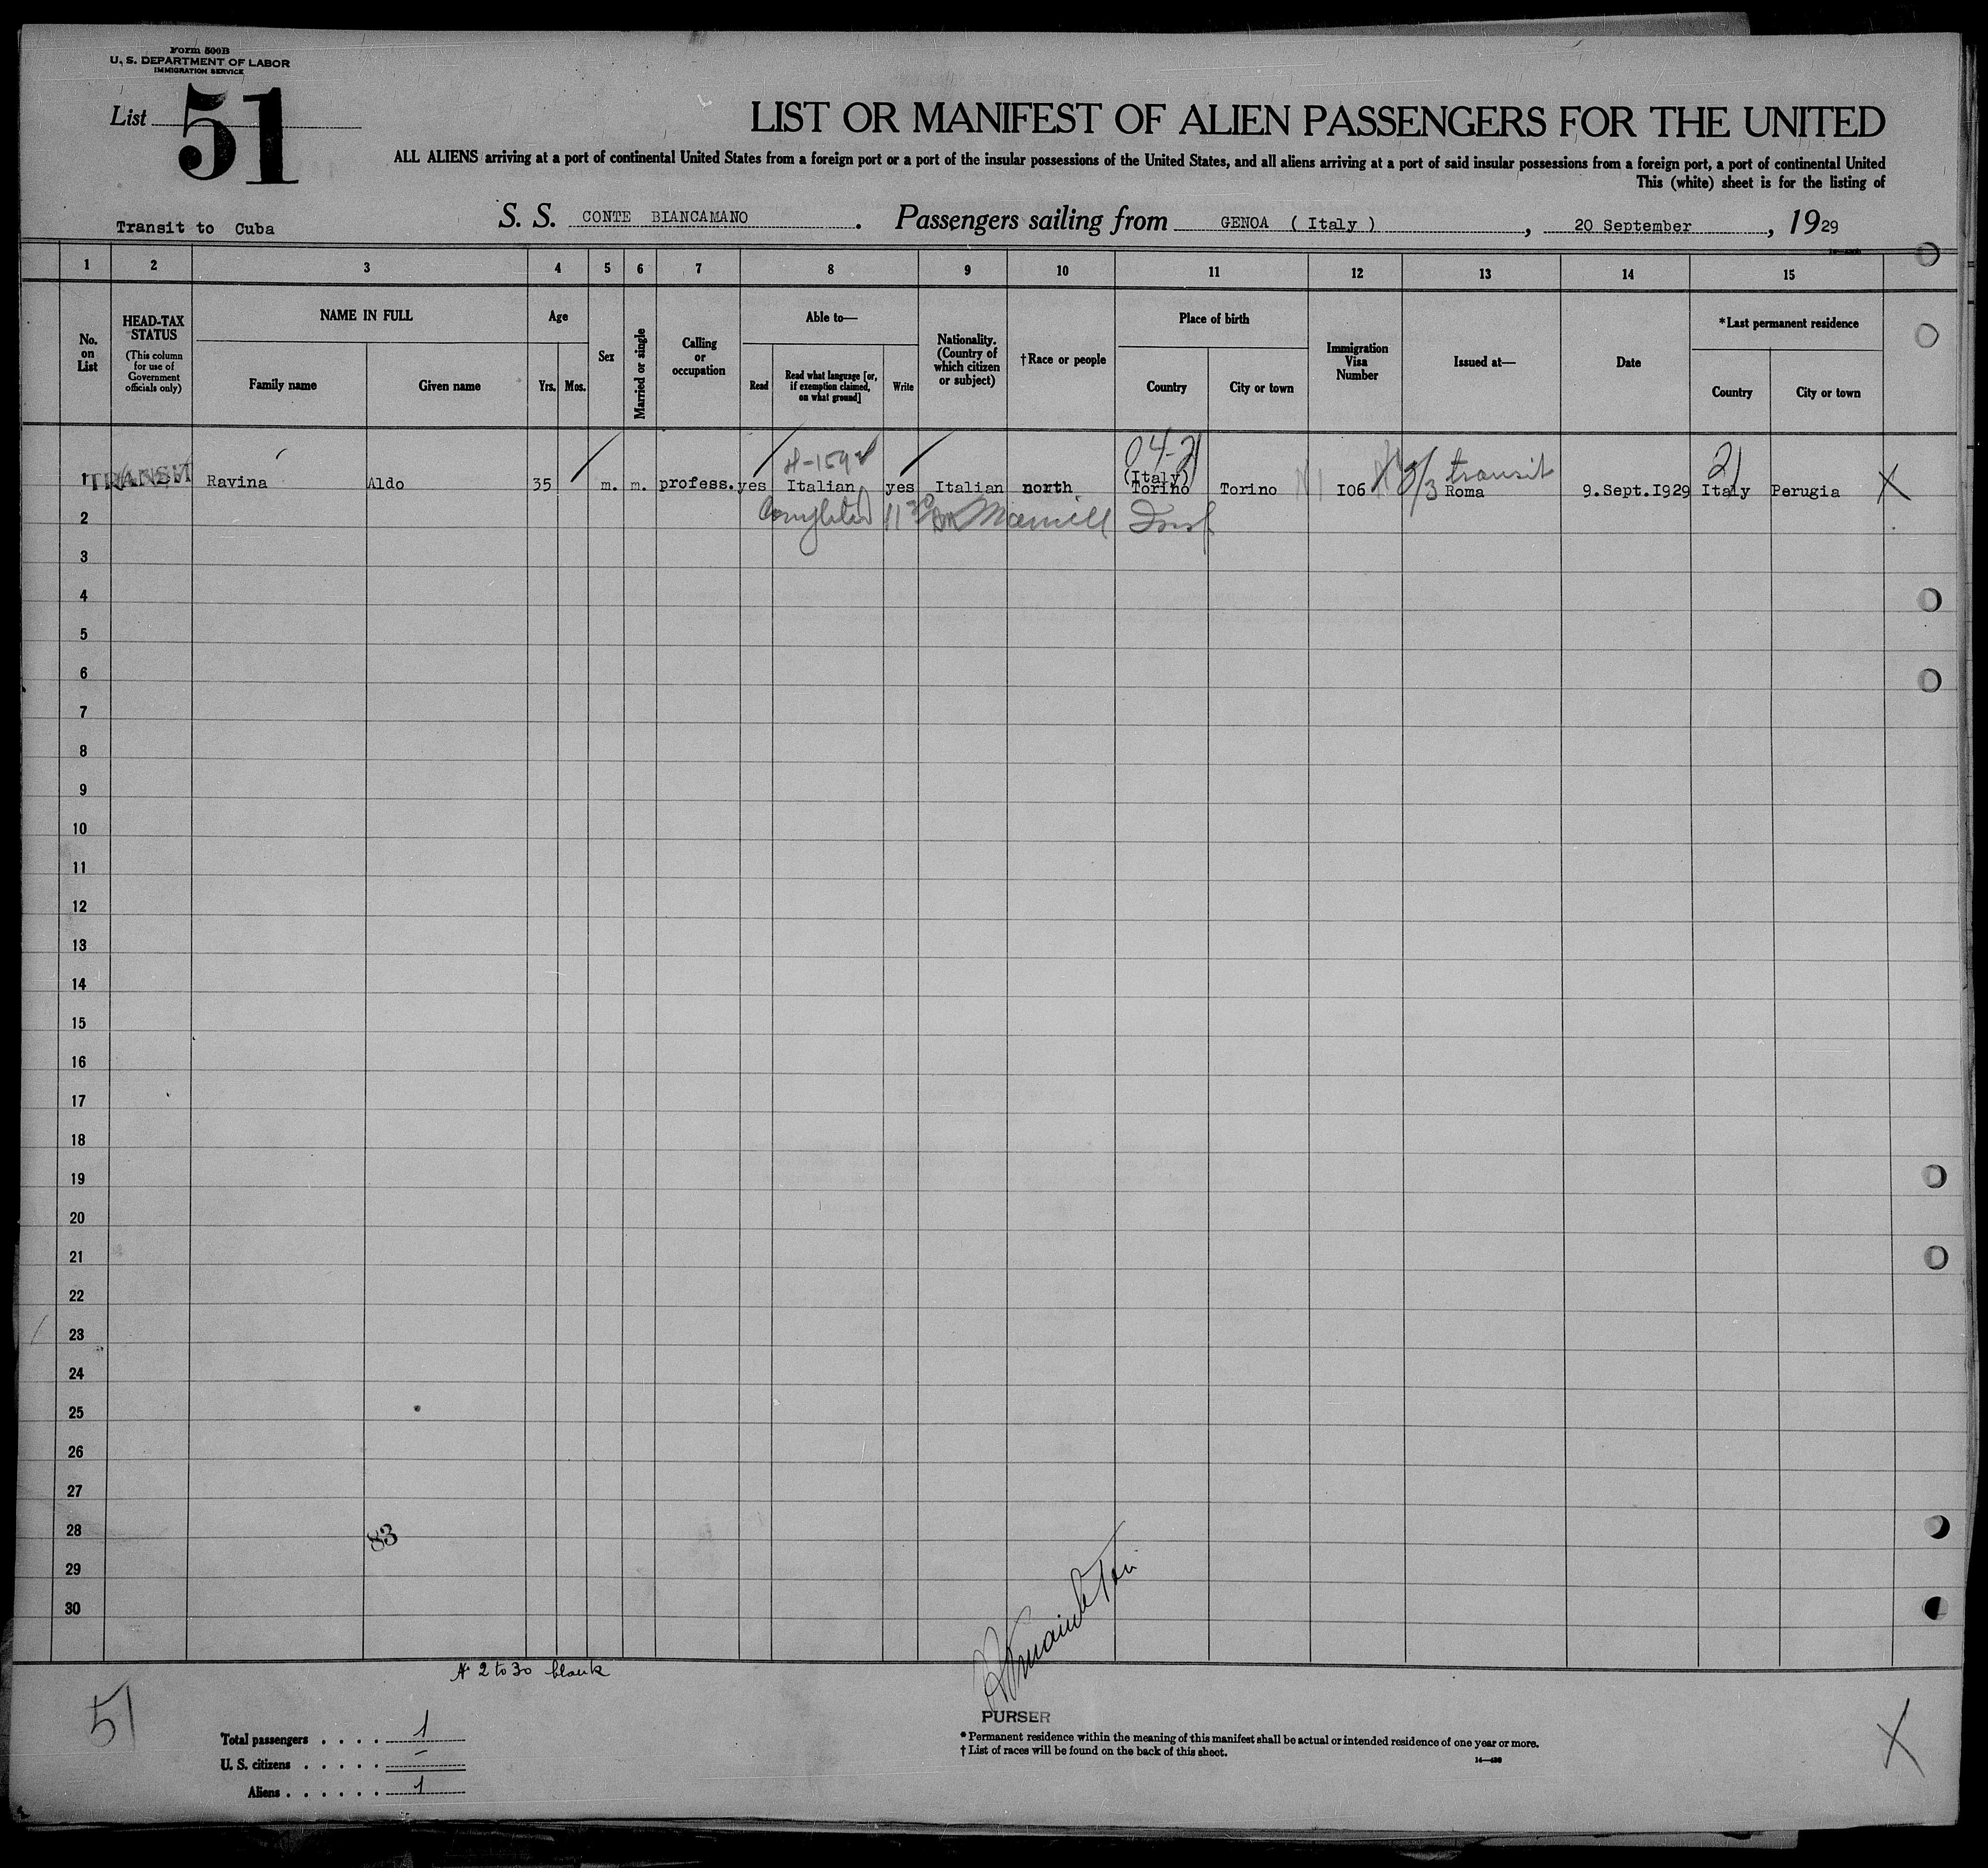 Form 500B
U. S. DEPARTMENT OF LABOR
IMMIGRATION SERVICE
List 51
LIST OR MANIFEST OF ALIEN PASSENGERS FOR THE UNITED
ALL ALIENS arriving at a port of continental United States from a foreign port or a port of the insular possessions of the United States, and all aliens arriving at a port of said insular possessions from a foreign port, a port of continental United
This (white) sheet is for the listing of
Transit to Cuba
S. S. CONTE BIANCAMANO. Passengers sailing from GENOA ( Italy ), 20 September, 1929
1 2 3 4 5 6 7 8 9 10 11 12 13 14 15
No. on List
HEAD-TAX STATUS
(This column for use of Government officials only)
NAME IN FULL
Family name
Given name
Age
Yrs. Mos.
Sex
Married or single
Calling or occupation
Able to—
Read
Read what language [or, if exemption claimed, on what ground]
Write
Nationality. (Country of which citizen or subject)
†Race or people
Place of birth
Country
City or town
Immigration Visa Number
Issued at—
Date
*Last permanent residence
Country
City or town
04-21
21
(Italy) transit
1 TRANSIT Ravina Aldo 35 m. m. profess. yes Italian yes Italian north Torino Torino 106 Roma 9.Sept.1929 Italy Perugia X
2
3
4
5
6
7
8
9
10
11
12
13
14
15
16
17
18
19
20
21
22
23
24
25
26
27
28 83
29
30
N. 2 to 30 blank
51
Total passengers . . . . 1
U. S. citizens . . . . . –
Aliens . . . . . . 1
PURSER
* Permanent residence within the meaning of this manifest shall be actual or intended residence of one year or more.
† List of races will be found on the back of this sheet.
X